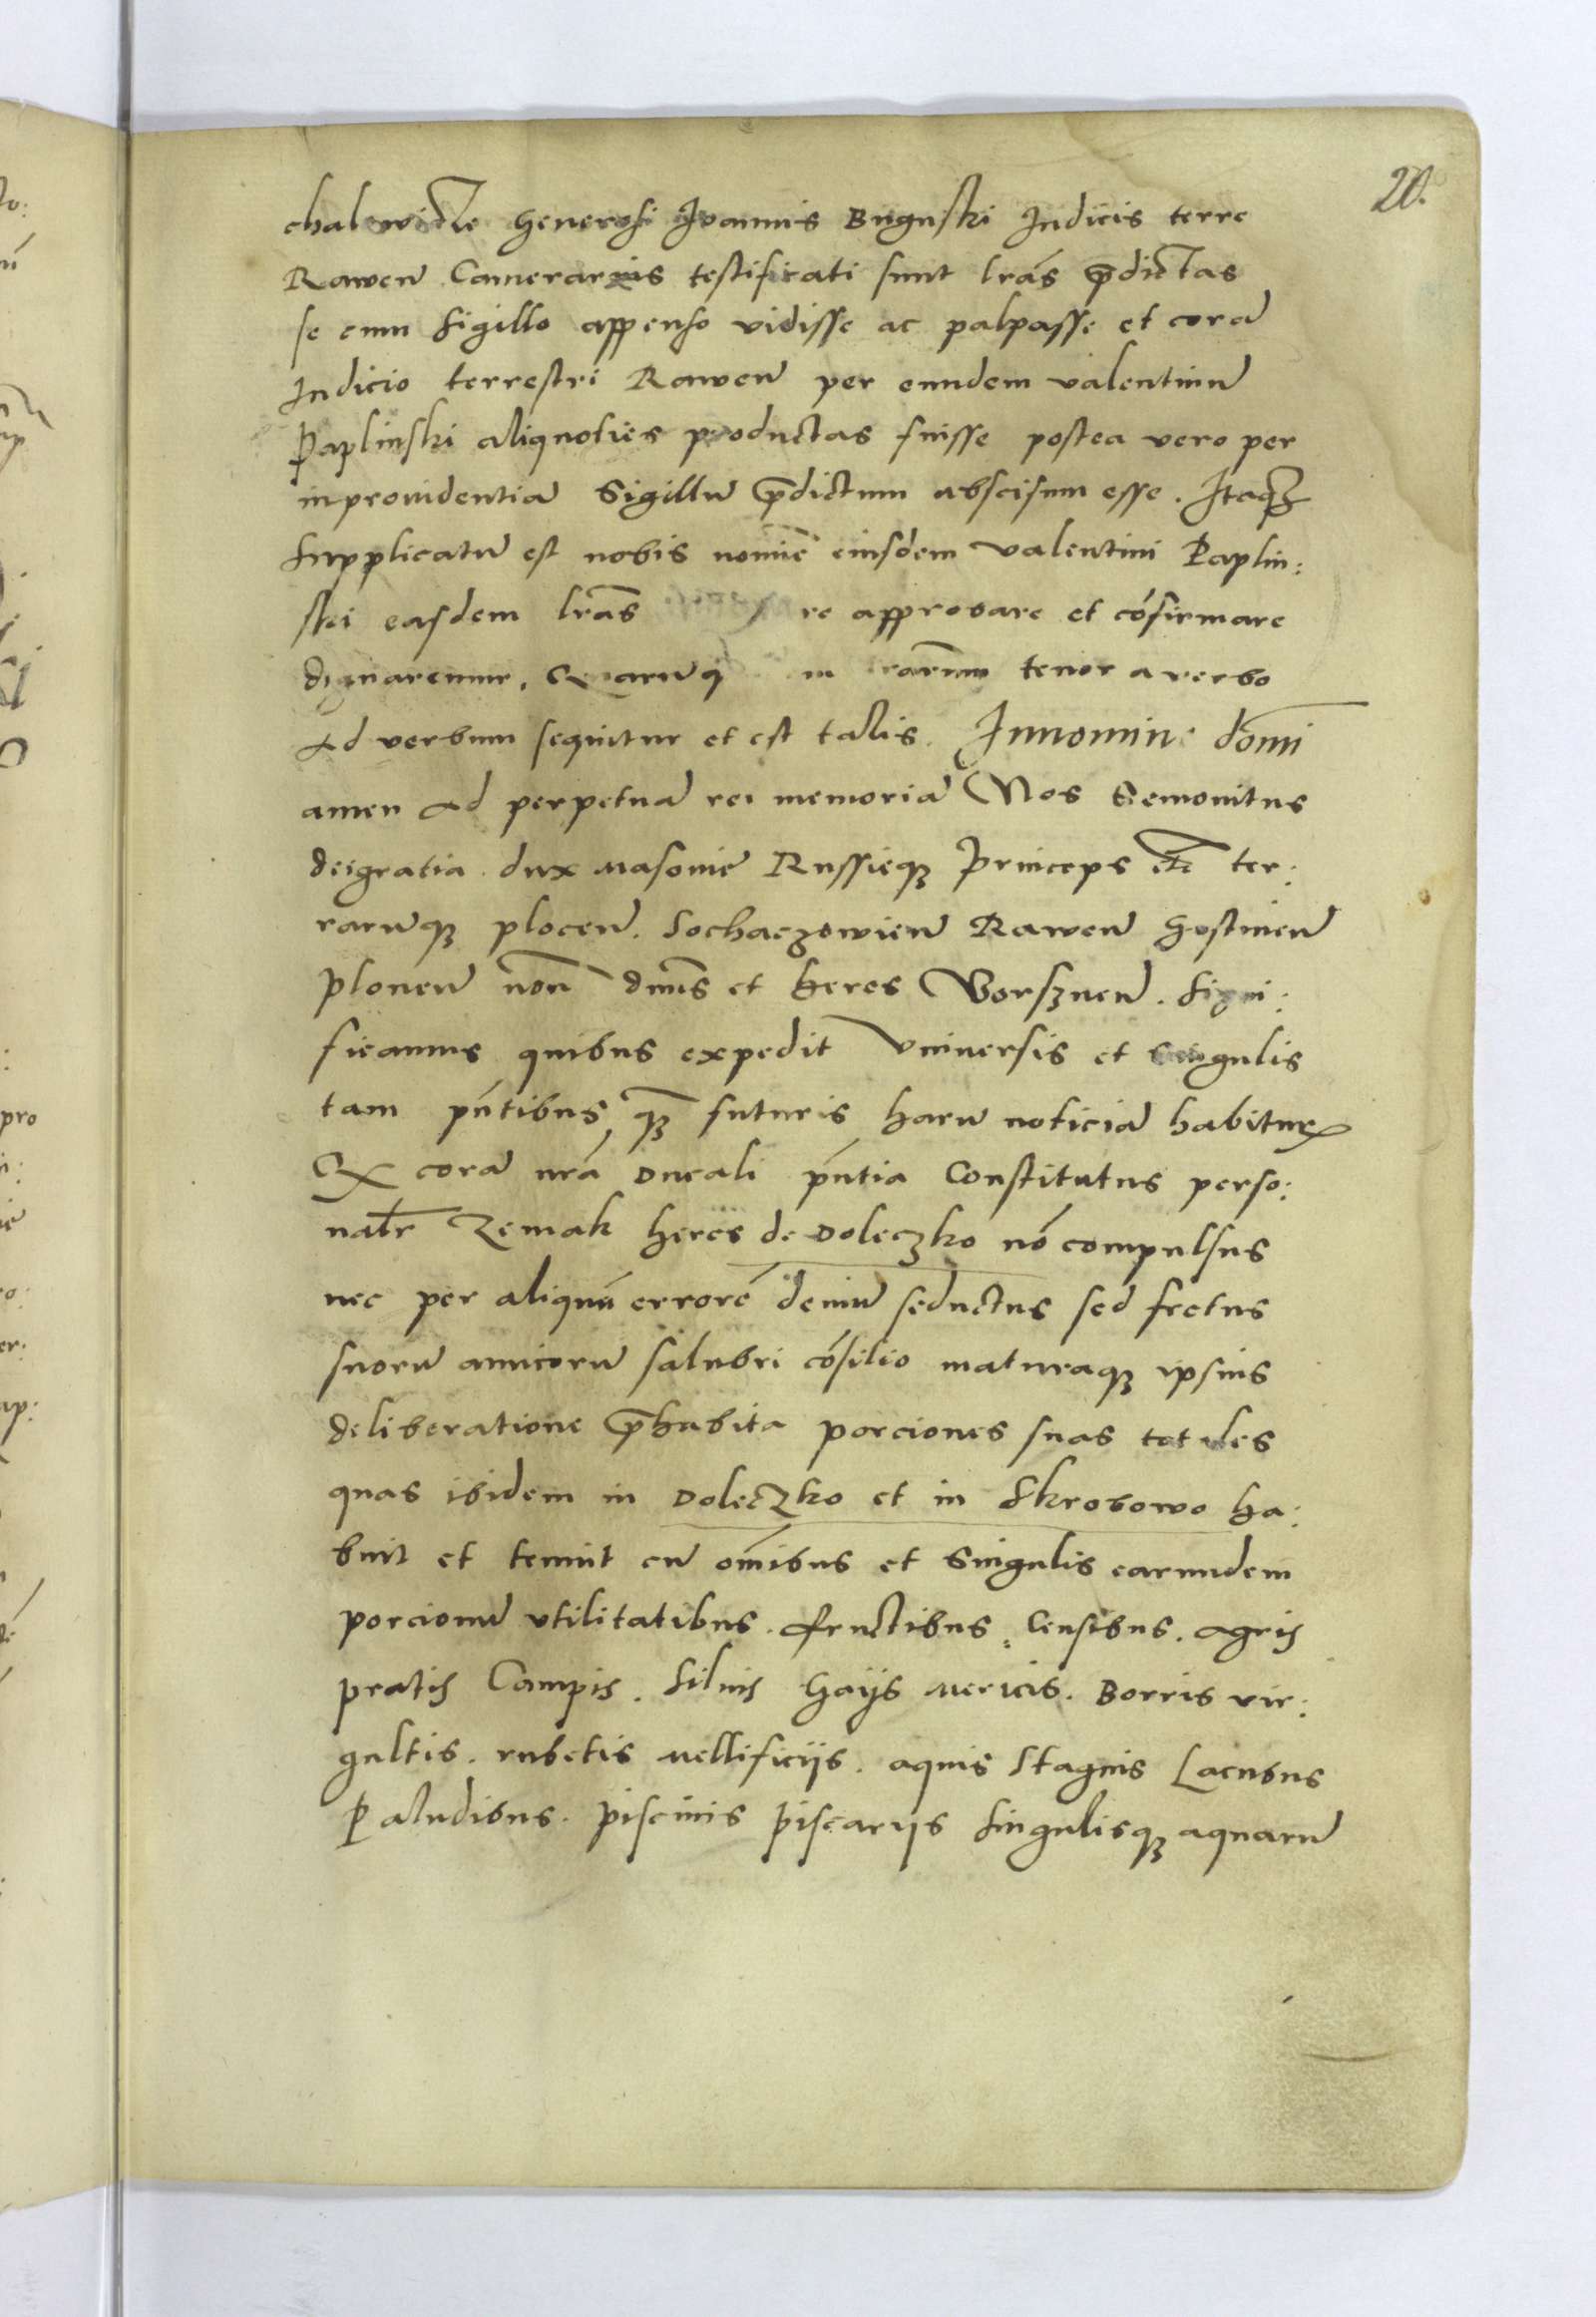 20.
chalowicte Generosi Joannis Bugnski Iudicis terre
Rawen̄ Camerarius testificati sunt lrās p̄dictas
se cum sigillo appenso vidisse ac palpasse et corā
Iudicio terrestri Rawen̄ per eundem valentinū
Paplinski aliquoties productas fuisse postea vero per
inprouidentiā Sigillū p̄dictum abscisum esse . Itaqȝ
supplicatū est nobis nomīe eiusdem valentini Paplin:
ski easdem lrās re approbare et cōfirmare
dignaremur . Quarū tenor a verbo
ad verbum sequitur et est talis . In nomine domī
amen Ad perpetuā rei memoriā Nos Semouitus
dei gratia dux Masouie Russieqȝ Princeps etc̄ ter:
rarūqȝ plocen̄ . Sochaczowien̄ Rawen̄ Gostinen̄
plonen̄ non̄ dnūs et heres Vorsznen̄ . Signi:
ficamus quibus expedit Vniuersis et singulis
tam pn̄tibus qȝ futuris harū noticiā habituř
Qx corā nrā Ducali pn̄tia Constitutus perso:
nalr̄ Zemak heres de Doleczko nō compulsus
nec per aliquū errorē deuiū seductus sed fretus
suorū amicorū salubri cōsilio maturaqȝ ipsius
deliberatione p̄habita porciones suas totales
quas ibidem in Doleczko et in Skrobowo ha:
buit et tenuit cū om̄ibus et Singulis earundem
porcionū vtilitatibus . fructibus . Censibus . agris
pratis Campis . siluis Gaijs Mericis . Borris vir:
gultis . rubetis Mellificijs . aquis Stagnis Lacubus
Paludibus . piscinis piscarijs singulisqȝ aquarū